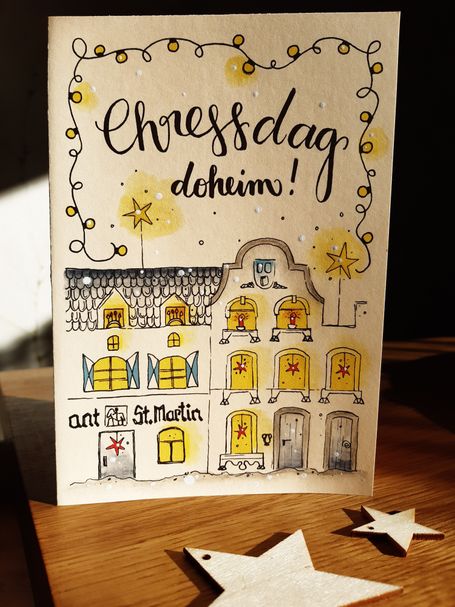 Chressdag
doheim!
ant St. Martin